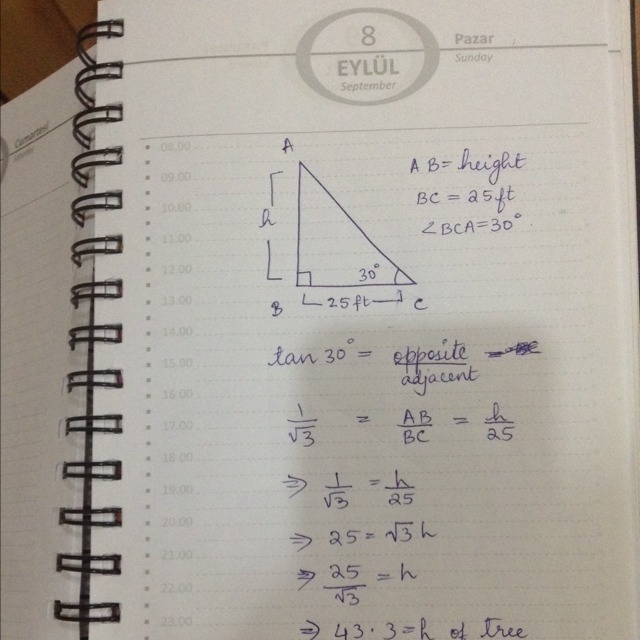 8
EYLÜL
September
Pazar
Sunday
Cumartesi
08.00
09.00
10.00
11.00
12.00
13.00
14.00
15.00
16.00
17.00
18.00
19.00
20.00
21.00
22.00
23.00
A
h
B
C
30°
25 ft
AB = height
BC = 25 ft
∠BCA = 30°
tan 30° = opposite / adjacent
1/√3 = AB/BC = h/25
⇒ 1/√3 = h/25
⇒ 25 = √3 h
⇒ 25/√3 = h
⇒ 43·3 = h of tree